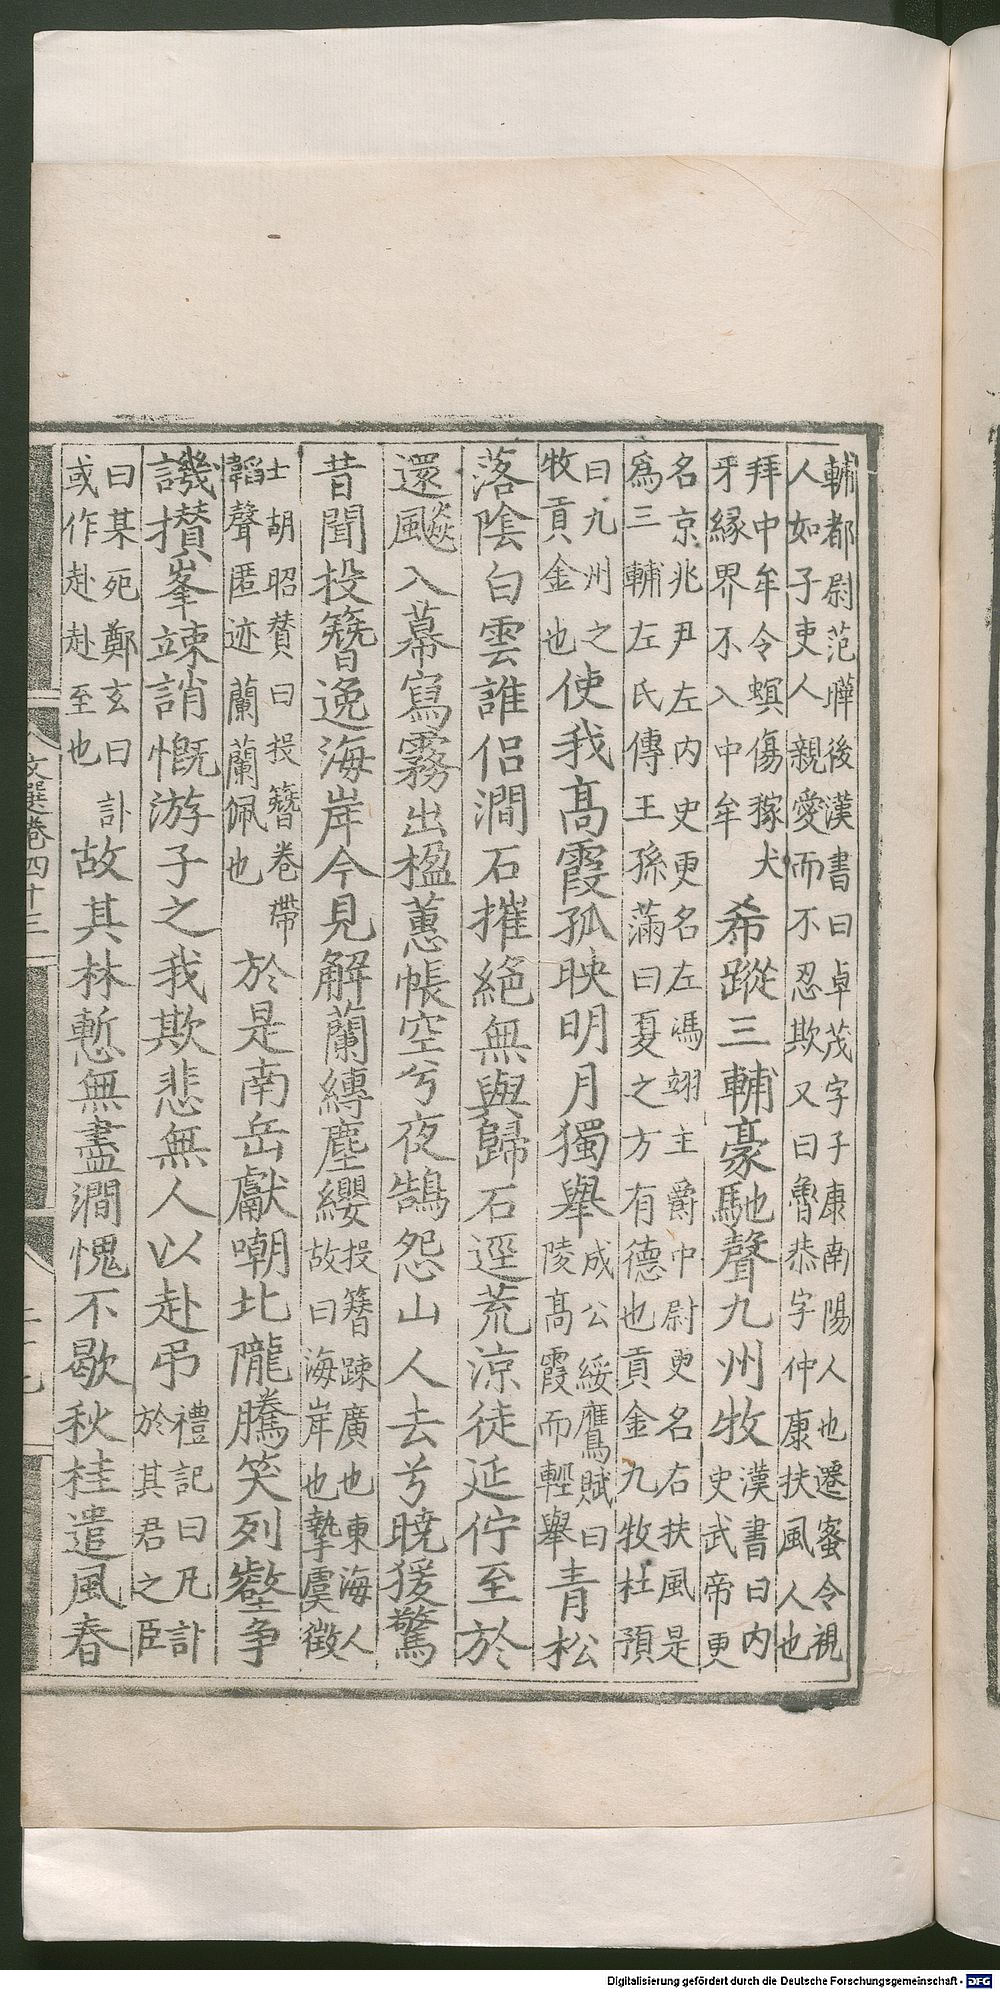 輔都尉范曄後漢書曰卓茂字子康南陽人也遷蜜令視
人如子吏人親愛而不忍欺又曰魯恭字仲康扶風人也
拜中牟令螟傷稼犬
牙緣界不入中牟
希蹤三輔豪馳聲九州牧
漢書曰内
史武帝更
名京兆尹左内史更名左馮翊主爵中尉更名右扶風是
爲三輔左氏傳王孫滿曰夏之方有德也貢金九牧杜預
曰九州之
牧貢金也
使我高霞孤映明月獨舉
成公綏鷹賦曰
陵高霞而輕舉
青松
落陰白雲誰侶澗石摧絕無與歸石逕荒涼徒延佇至於
還飈入幕寫霧出楹蕙帳空兮夜鵠怨山人去兮曉猨驚
昔聞投簪逸海岸今見解蘭縛塵纓
投簪踈廣也東海人
故曰海岸也摯虞徵
士胡昭贊曰投簪卷帶
韜聲匿迹蘭蘭佩也
於是南岳獻嘲北隴騰笑列壑爭
譏攢峯竦誚慨游子之我欺悲無人以赴弔
禮記曰凡訃
於其君之臣
曰某死鄭玄曰訃
或作赴赴至也
故其林慙無盡澗愧不歇秋桂遣風春
文選卷四十三
Digitalisierung gefördert durch die Deutsche Forschungsgemeinschaft - DFG